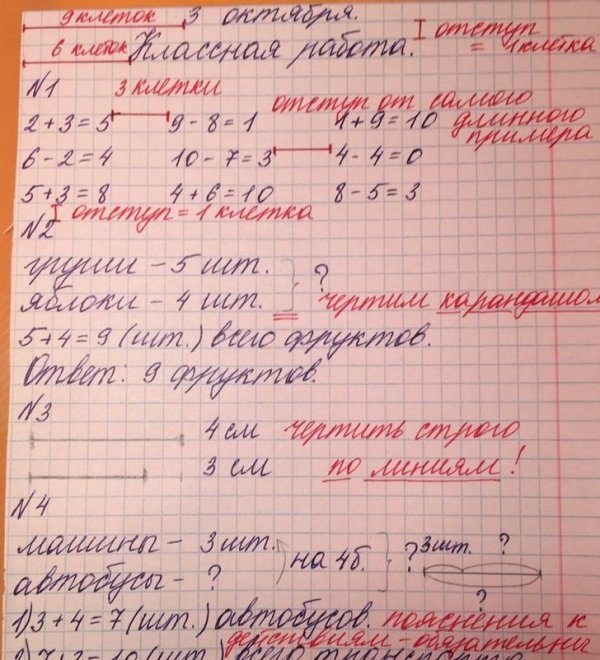 9 клеток 3 октября.
6 клеток Классная работа. отступ = 1 клетка
№1 3 клетки
отступ от самого
2+3=5 9-8=1 1+9=10 длинного
примера
6-2=4 10-7=3 4-4=0
5+3=8 4+6=10 8-5=3
отступ = 1 клетка
№2
груши - 5 шт. ?
яблоки - 4 шт. = чертим карандашом
5+4=9 (шт.) всего фруктов.
Ответ: 9 фруктов.
№3
4 см чертить строго
3 см по линиям!
№4
машины - 3 шт. на 4б. ? 3шт. ?
автобусы - ? ?
1) 3+4=7 (шт.) автобусов. пояснения к
действиям - обязательны
2) 7+3=10 (шт.) всего